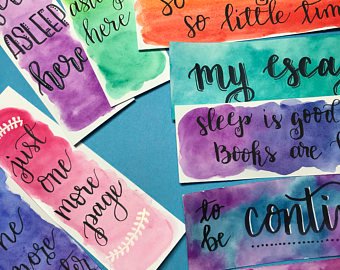 ASLEEP
here
asleep
here
so little tim
my esca
sleep is good
Books are
to
be conti
just
one
more
page
one
more